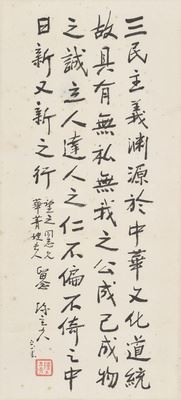 三民主義淵源於中華文化道統
故具有無私無我之公成己成物
之誠立人達人之仁不偏不倚之中
日新又新之行
望之同志
華菁
陳立夫